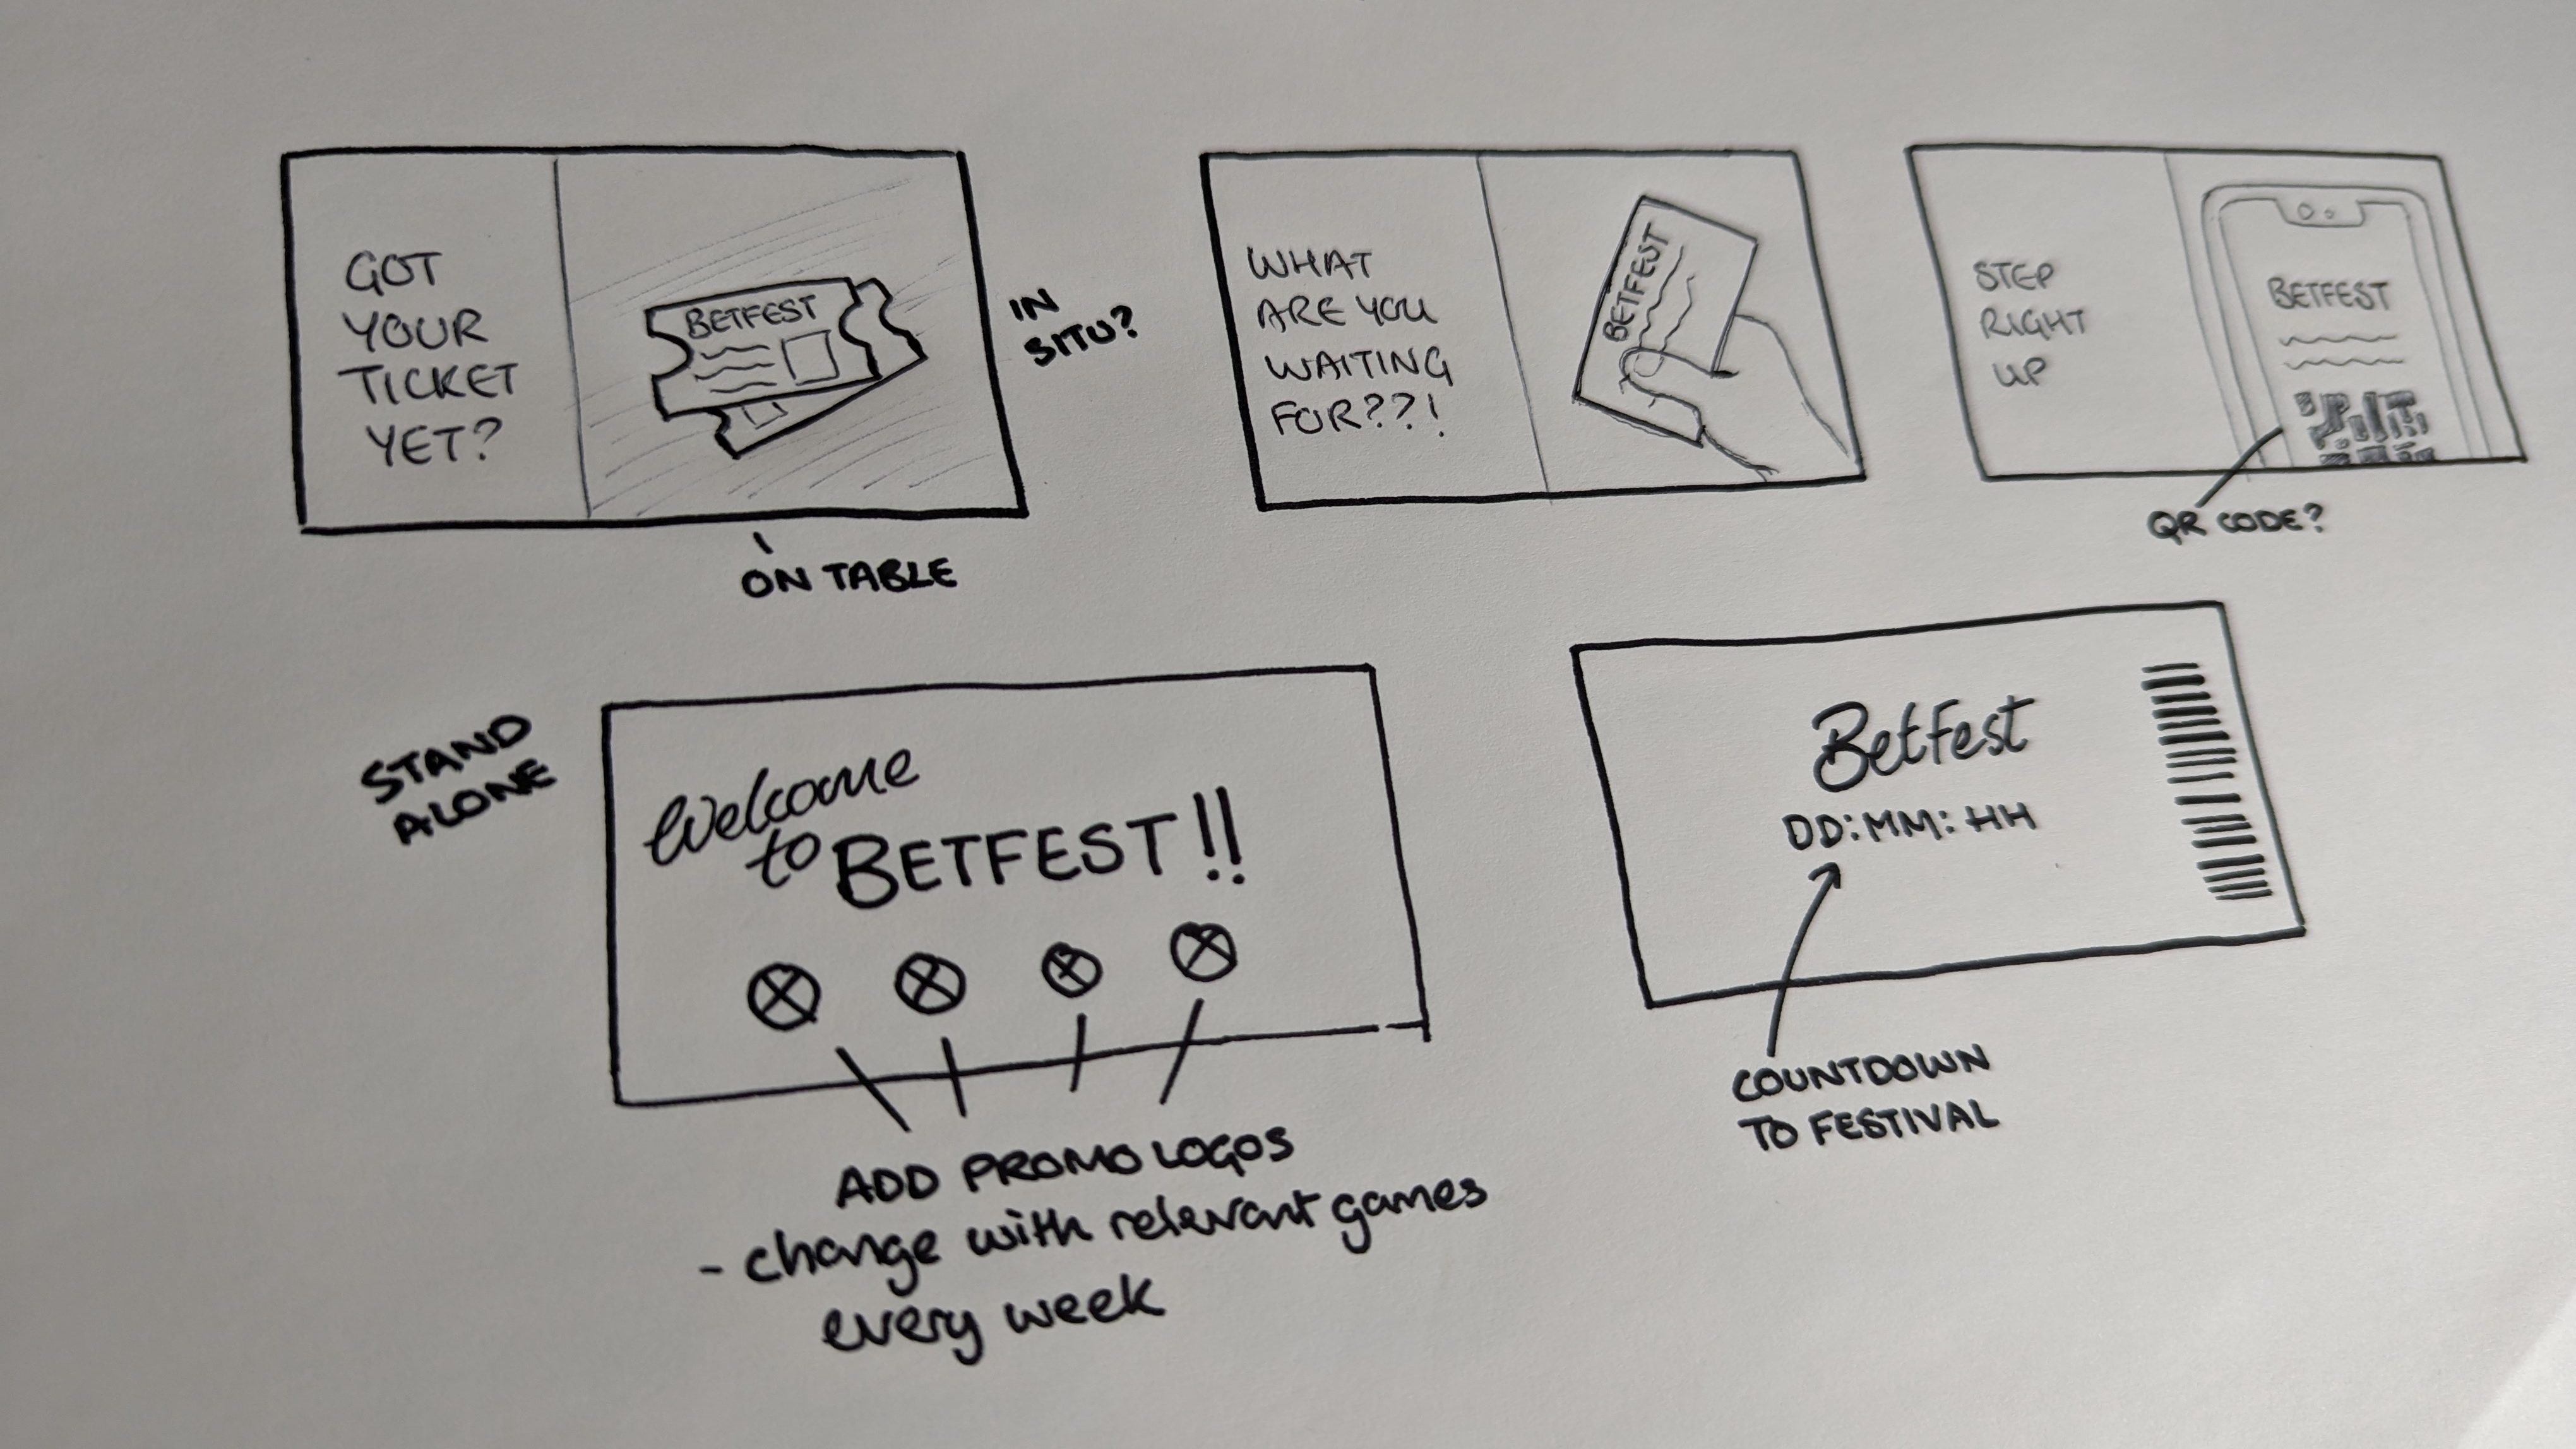 GOT
YOUR
TICKET
YET?
BETFEST
IN
SITU?
ON TABLE
WHAT
ARE YOU
WAITING
FOR??!
BETFEST
STEP
RIGHT
UP
BETFEST
QR CODE?
STAND
ALONE
Welcome
to BETFEST!!
ADD PROMO LOGOS
- change with relevant games
every week
Betfest
DD:MM:HH
COUNTDOWN
TO FESTIVAL